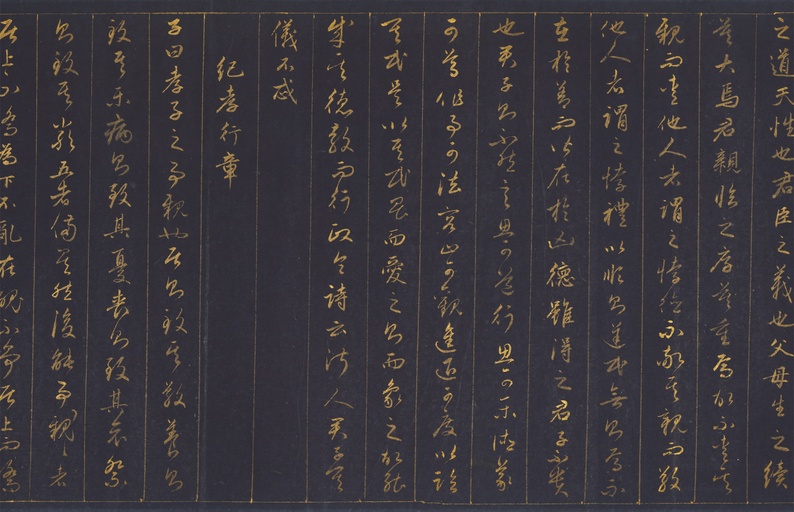 之道天性也君臣之義也父母生之續
莫大焉君親臨之厚莫重焉故不愛其
親而愛他人者謂之悖德不敬其親而敬
他人者謂之悖禮以順則逆民無則焉不
在於善而皆在於凶德雖得之君子不貴
也君子則不然言思可道行思可樂德義
可尊作事可法容止可觀進退可度以臨
其民是以其民畏而愛之則而象之故能
成其德教而行政令詩云淑人君子其
儀不忒
紀孝行章
子曰孝子之事親也居則致其敬養則
致其樂病則致其憂喪則致其哀祭
則致其嚴五者備矣然後能事親〻者
居上不驕為下不亂在醜不爭居上而驕